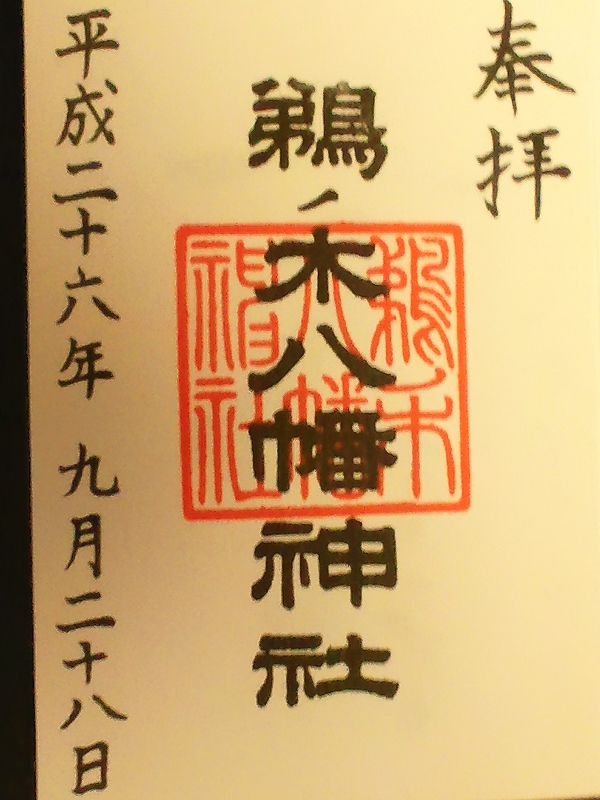 奉拝
鵜ノ木八幡神社
鵜木
八幡
神社
平成二十六年 九月二十八日